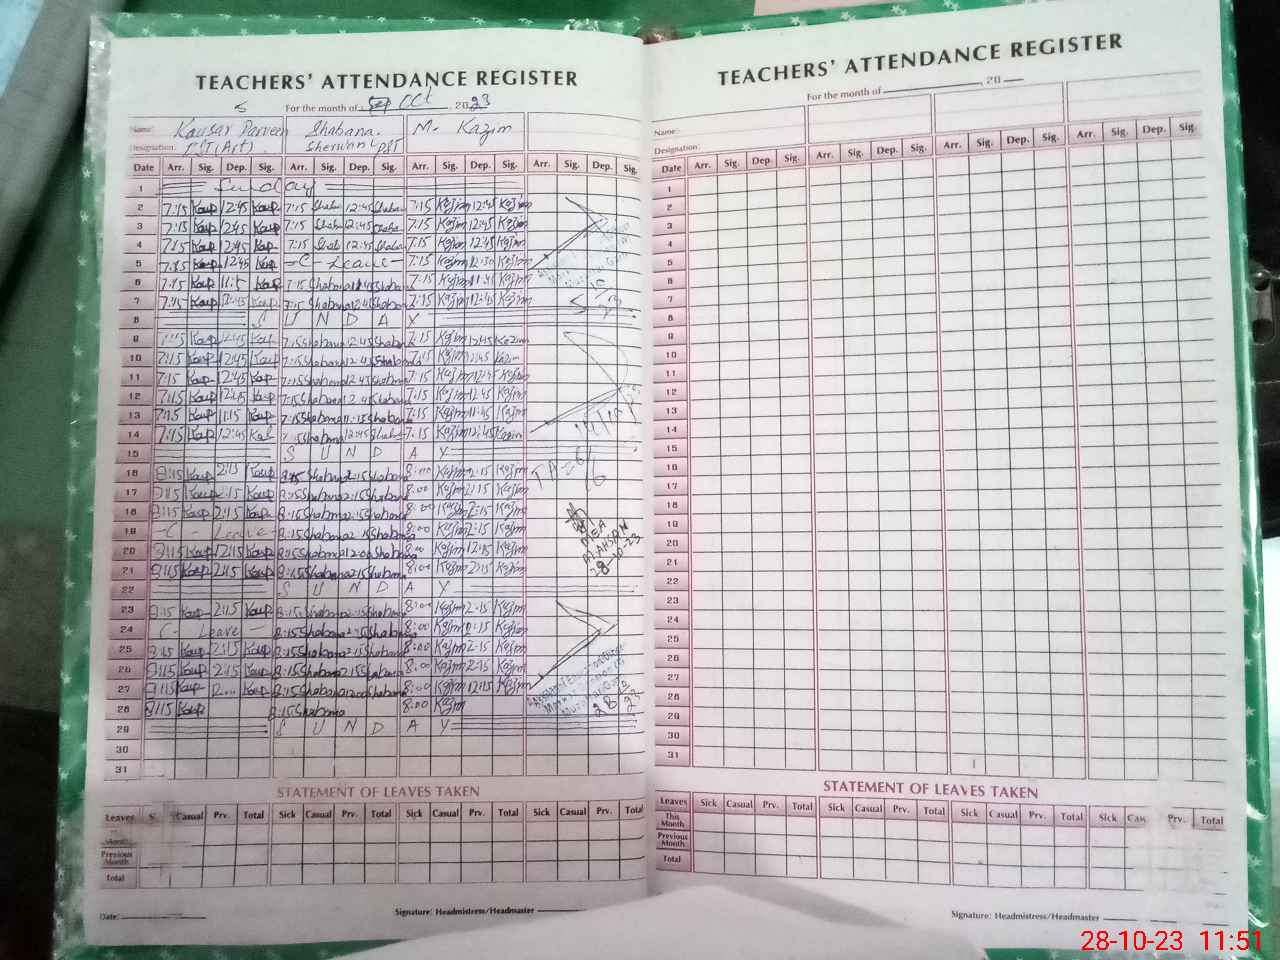 TEACHERS' ATTENDANCE REGISTER
For the month of Sep Oct, 2023
Name: Kausar Parveen Shabana. M. Kazim
Designation: PST (Art). Sherwani PST
Date Arr. Sig. Dep. Sig. Arr. Sig. Dep. Sig. Arr. Sig. Dep. Sig. Arr. Sig. Dep. Sig.
1 Sunday
2 7:15 Kaup 12:45 Kaup 7:15 Shaba 12:45 Shaba 7:15 Kazim 12:45 Kazim
3 7:15 Kaup 12:45 Kaup 7:15 Shab 12:45 Shaba 7:15 Kazim 12:45 Kazim
4 7:15 Kaup 12:45 Kaup 7:15 Shab 12:45 Shaba 7:15 Kazim 12:45 Kazim
5 7:15 Kaup 12:45 Kaup - C - Leave - 7:15 Kazim 12:30 Kazim
6 7:15 Kaup Kaup 7:15 Shabana 11:45 Shabana 7:15 Kazim 11:45 Kazim
7 7:15 Kaup 12:45 Kaup 7:15 Shabana 12:45 Shabana 7:15 Kazim 12:45 Kazim
8 S U N D A Y
9 7:15 Kaup 12:45 Kaup 7:15 Shabana 12:45 Shaba 7:15 Kazim 12:45 Kazim
10 7:15 Kaup 12:45 Kaup 7:15 Shabana 12:45 Shabana 7:15 Kazim 12:45 Kazim
11 7:15 Kaup 12:45 Kaup 7:15 Shabana 12:45 Shabana 7:15 Kazim 12:45 Kazim
12 7:15 Kaup 12:45 Kaup 7:15 Shabana 12:45 Shabana 7:15 Kazim 12:45 Kazim
13 7:15 Kaup 11:15 Kaup 7:15 Shabana 11:15 Shabana 7:15 Kazim 11:45 Kazim
14 7:15 Kaup 12:45 Kaup 7:15 Shabana 12:45 Shaba 7:15 Kazim 12:45 Kazim
15 S U N D A Y
16 8:15 Kaup 2:15 Kaup 8:15 Shabana 2:15 Shabana 8:00 Kazim 2:15 Kazim
17 8:15 Kaup 2:15 Kaup 8:15 Shabana 2:15 Shabana 8:00 Kazim 2:15 Kazim
18 8:15 Kaup 2:15 Kaup 8:15 Shabana 2:15 Shabana 8:00 Kazim 2:15 Kazim
19 - C - Leave - 8:15 Shabana 2:15 Shabana 8:00 Kazim 2:15 Kazim
MEA
M.AHSAN
28-10-23
20 8:15 Kaup 12:15 Kaup 8:15 Shabana 12:00 Shabana 8:00 Kazim 12:15 Kazim
21 8:15 Kaup 2:15 Kaup 8:15 Shabana 2:15 Shabana 8:00 Kazim 2:15 Kazim
22 S U N D A Y
23 8:15 Kaup 2:15 Kaup 8:15 Shabana 2:15 Shabana 8:00 Kazim 2:15 Kazim
24 C - Leave - 8:15 Shabana 2:15 Shabana 8:00 Kazim 2:15 Kazim
25 8:15 Kaup 2:15 Kaup 8:15 Shabana 2:15 Shabana 8:00 Kazim 2:15 Kazim
26 8:15 Kaup 2:15 Kaup 8:15 Shabana 2:15 Shabana 8:00 Kazim 2:15 Kazim
27 8:15 Kaup Kaup 8:15 Shabana 12:00 Shabana 8:00 Kazim 12:15 Kazim
28 8:15 Kaup 8:15 Shabana 8:00 Kazim
29 S U N D A Y
30
31
STATEMENT OF LEAVES TAKEN
Leaves Casual Prv. Total Sick Casual Prv. Total Sick Casual Prv. Total Sick Casual Prv. Total
Month
Previous Month
Total
Date:
Signature: Headmistress/Headmaster
TEACHERS' ATTENDANCE REGISTER
For the month of , 20
Name:
Designation:
Date Arr. Sig. Dep. Sig. Arr. Sig. Dep. Sig. Arr. Sig. Dep. Sig. Arr. Sig. Dep. Sig.
1
2
3
4
5
6
7
8
9
10
11
12
13
14
15
16
17
18
19
20
21
22
23
24
25
26
27
28
29
30
31
STATEMENT OF LEAVES TAKEN
Leaves Sick Casual Prv. Total Sick Casual Prv. Total Sick Casual Prv. Total Sick Cas Prv. Total
This Month
Previous Month
Total
Signature: Headmistress/Headmaster
28-10-23 11:51